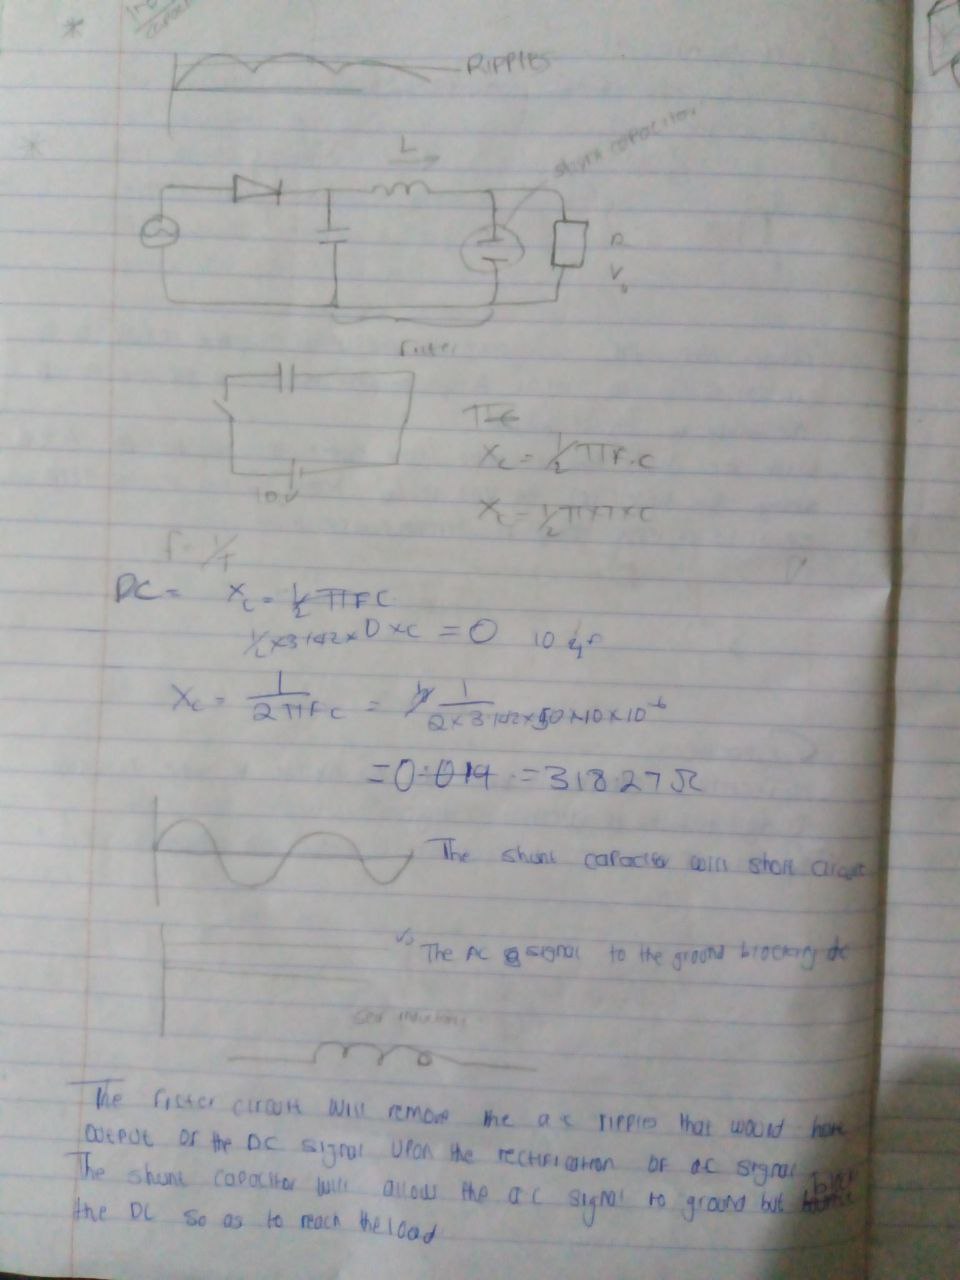 RIPPLES
L
shunt capacitor
R
V₀
Filter
10V
X_C = 1/2 πF.C
F = 1/T
DC = X_C = 1/2 πFC
1/2 x 3.142 x 0 x C = 0 10
X_C = 1/2πFC = 1/2x3.142x50x10x10⁻⁶
= 0.019 = 318.27Ω
The shunt capacitor will short circuit
The AC signal to the ground blocking dc
The Filter circuit will remove the a c ripples that would have
output of the DC signal upon the rectification of ac signal
The shunt capacitor will allow the a c signal to ground but block
the DC so as to reach the load